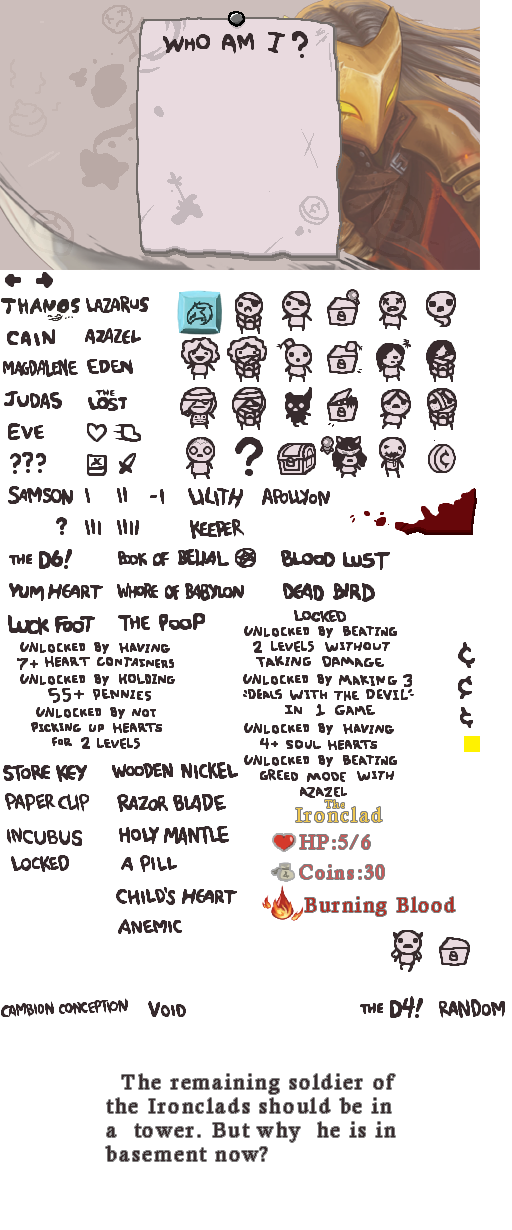 WHO AM I ?
THANOS LAZARUS
CAIN AZAZEL
MAGDALENE EDEN
JUDAS THE LOST
EVE
???
?
SAMSON I II -1 LILITH APOLLYON
? III IIII KEEPER
THE D6! BOOK OF BELIAL BLOOD LUST
YUM HEART WHORE OF BABYLON DEAD BIRD
LUCK FOOT THE POOP
LOCKED
UNLOCKED BY BEATING
2 LEVELS WITHOUT
TAKING DAMAGE
UNLOCKED BY HAVING
7+ HEART CONTAINERS
UNLOCKED BY HOLDING
55+ PENNIES
UNLOCKED BY NOT
PICKING UP HEARTS
FOR 2 LEVELS
UNLOCKED BY MAKING 3
"DEALS WITH THE DEVIL"
IN 1 GAME
UNLOCKED BY HAVING
4+ SOUL HEARTS
UNLOCKED BY BEATING
GREED MODE WITH
AZAZEL
¢
¢
¢
STORE KEY WOODEN NICKEL
PAPER CLIP RAZOR BLADE
INCUBUS HOLY MANTLE
LOCKED A PILL
CHILD'S HEART
ANEMIC
The
Ironclad
HP:5/6
Coins:30
Burning Blood
CAMBION CONCEPTION VOID THE D4! RANDOM
The remaining soldier of
the Ironclads should be in
a tower. But why he is in
basement now?